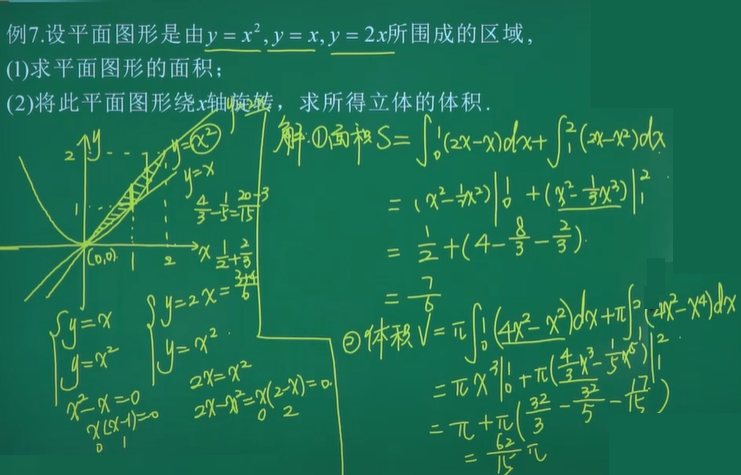 例7.设平面图形是由y = x²,y = x,y = 2x所围成的区域,
(1)求平面图形的面积;
(2)将此平面图形绕x轴旋转，求所得立体的体积.
y
2
y=x²
y=x
1
(0,0)
1
2
x
4/3-1/5=20-3/15
1/2+2/3
=3+4/6
{y=x
y=x²
x²-x=0
x(x-1)=0
0 1
{y=2x
y=x²
2x=x²
2x-x²=x(2-x)=0
0 2
解:①面积S=∫₀¹(2x-x)dx+∫₁²(2x-x²)dx
=(x²-½x²)|₀¹+(x²-⅓x³)|₁²
=1/2+(4-8/3-2/3)
=7/6
②体积V=π∫₀¹(4x²-x²)dx+π∫₁²(4x²-x⁴)dx
=πx³|₀¹+π(4/3x³-1/5x⁵)|₁²
=π+π(32/3-32/5-17/15)
=62/15π